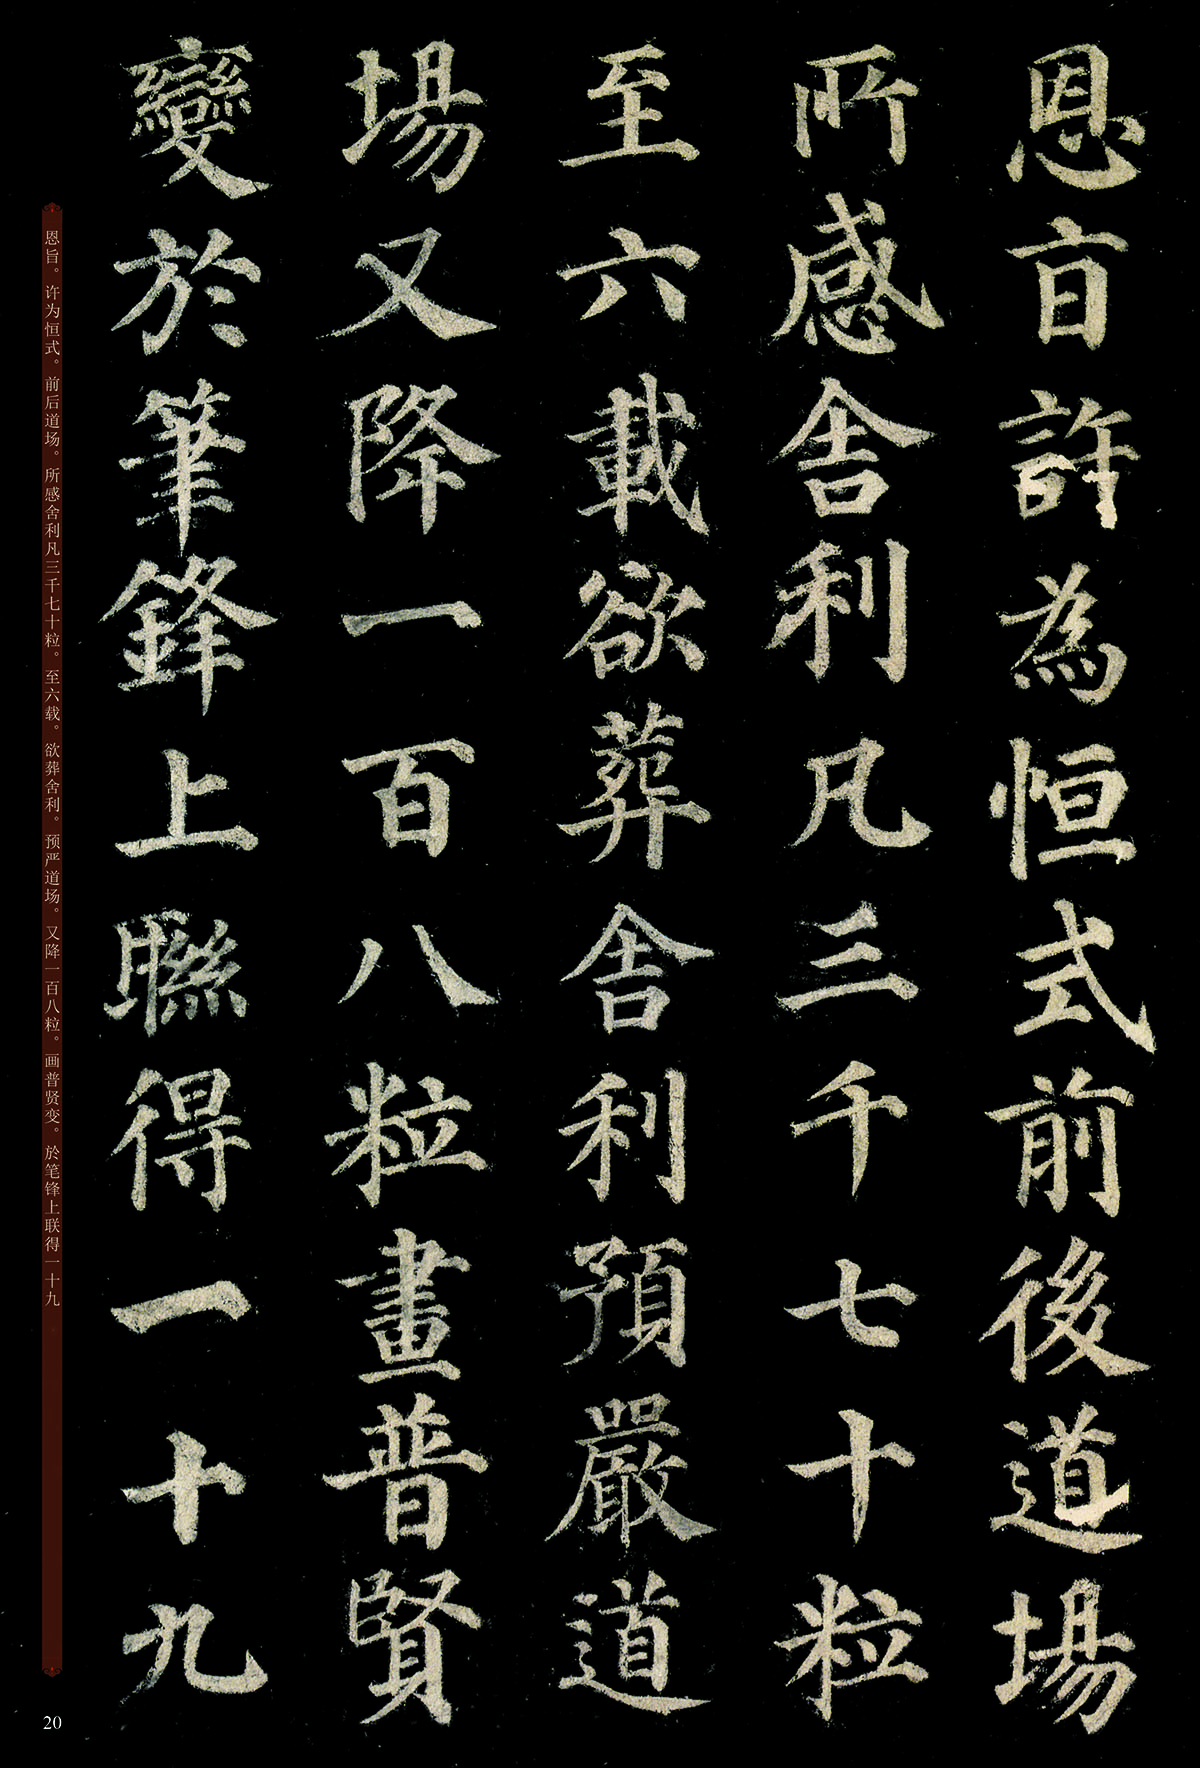 恩旨許為恒式前後道場
所感舍利凡三千七十粒
至六載欲葬舍利預嚴道
場又降一百八粒畫普賢
變於筆鋒上聯得一十九
恩旨。许为恒式。前后道场。所感舍利凡三千七十粒。至六载。欲葬舍利。预严道场。又降一百八粒。画普贤变。於笔锋上联得一十九
20